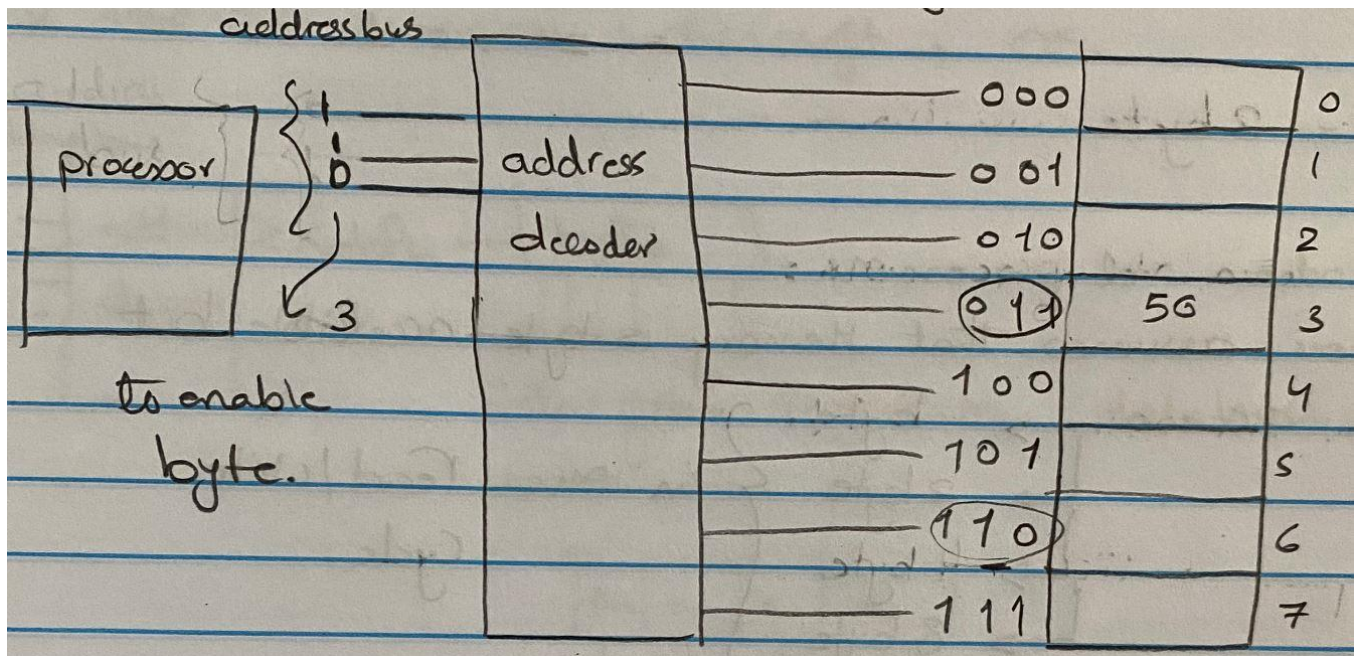 address bus
processor
1
1
0
3
to enable
byte.
address
decoder
000 0
001 1
010 2
011 50 3
100 4
101 5
110 6
111 7